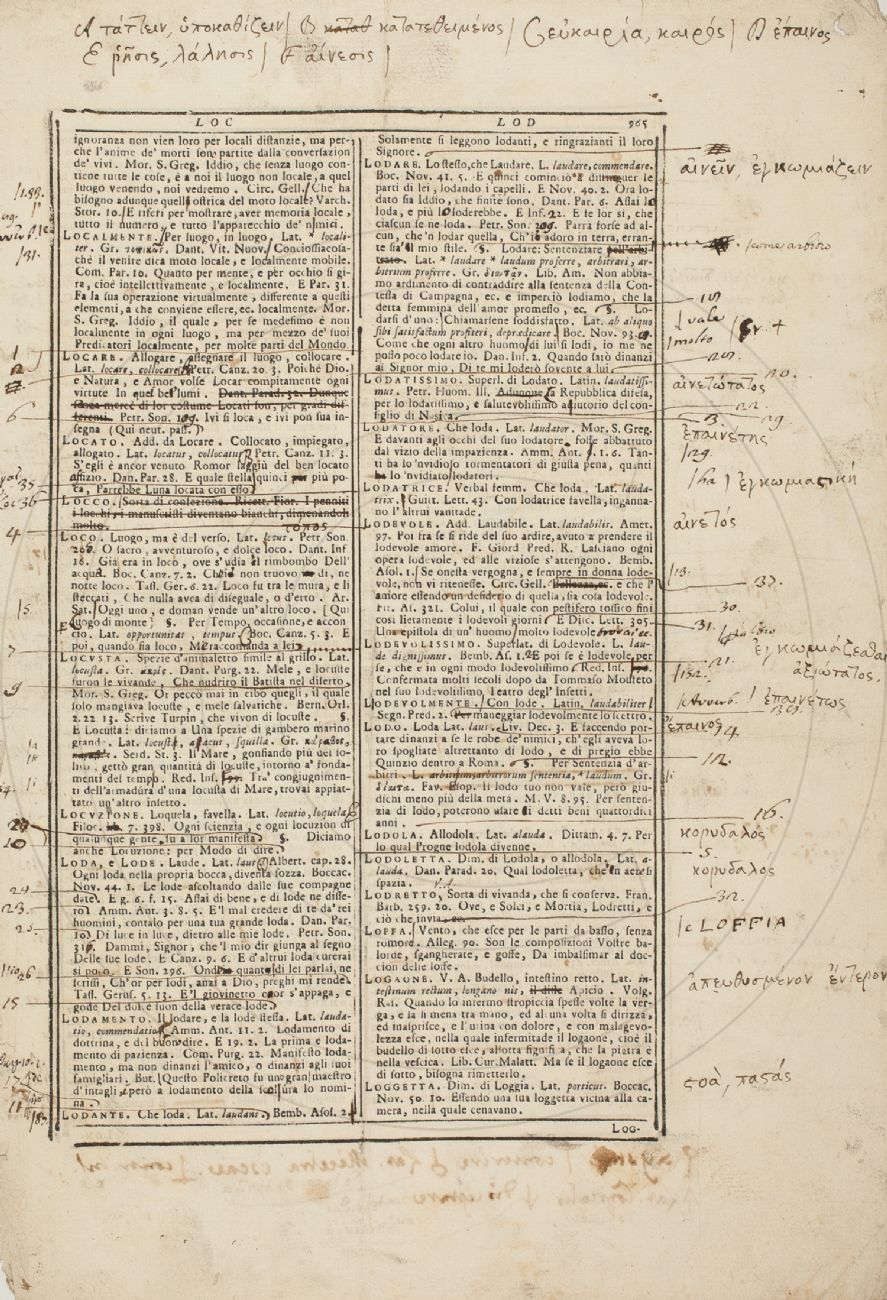 A τάττειν, ὑποκαθίζειν / B καταθ κατατεθειμένος / C εὐκαιρία, καιρός / D ἔπαινος
E ῥῆσις, λάλησις / F αἴνεσις /
LOC
LOD 965
ignoranza non vien loro per locali distanzie, ma per-
chè l'anime de' morti son partite dalla conversazion
de' vivi. Mor. S. Greg. Iddio, che senza luogo con-
tiene tutte le cose, è a noi il luogo non locale, a quel
luogo venendo, noi vedremo. Circ. Gell. Che ha
bisogno adunque quell'ostrica del moto locale? Varch.
Stor. 10. E riferì per mostrare, aver memoria locale,
tutto il numero, e tutto l'apparecchio de' nimici.
LOCALMENTE. Per luogo, in luogo. Lat. * locali-
ter. Gr. τοπικῶς. Dant. Vit. Nuov. Conciossiacosa-
chè il venire dica moto locale, e localmente mobile.
Com. Par. 10. Quanto per mente, e per occhio si gi-
ra, cioè intellettivamente, e localmente. E Par. 31.
Fa la sua operazione virtualmente, differente a questi
elementi, a che conviene essere, ec. localmente. Mor.
S. Greg. Iddio, il quale, per se medesimo è non
localmente in ogni luogo, ma per mezzo de' suoi
Predicatori localmente, per molte parti del Mondo.
LOCARE. Allogare, assegnare il luogo, collocare.
Lat. locare, collocare. Petr. Canz. 20. 3. Poichè Dio,
e Natura, e Amor volse Locar compitamente ogni
virtute In quel bel lumi. Dant. Parad. 32. Dunque
senza mercè di lor costume Locati son, per gradi dif-
ferenti. Petr. Son. Ivi si loca, e ivi pon sua in-
segna (Qui neut. pass.)
LOCATO. Add. da Locare. Collocato, impiegato,
allogato. Lat. locatus, collocatus. Petr. Canz. 11. 3.
S'egli è ancor venuto Romor laggiù del ben locato
affizio. Dan. Par. 28. E quale stella quinci per più po-
ca, Parrebbe Luna locata con esso.
LOCCO. Sorta di confezione. Ricett. Fior. I penniti
i lochi, i manuscristi diventano bianchi, dimenandoli
molto. τόπος
LOCO. Luogo, ma è del verso. Lat. locus. Petr. Son.
O sacro, avventuroso, e dolce loco. Dant. Inf.
16. Gia era in loco, ove s'udia il rimbombo Dell'
acqua. Boc. Canz. 7. 2. Ch'io non truovo di, ne
notte loco. Tass. Ger. 6. 22. Loco fu tra le mura, e li
steccati, Che nulla avea di diseguale, o d'erto. Ar.
Sat. Oggi uno, e doman vende un'altro loco. [Qui
luogo di monte] §. Per Tempo, occasione, e accon-
cio. Lat. opportunitas, tempus. Boc. Canz. 5. 3. E
poi, quando sia loco, Me raccomanda a lei
LOCUSTA. Spezie d'animaletto simile al grillo. Lat.
locusta. Gr. ἀκρίς. Dant. Purg. 22. Mele, e locuste
furon le vivande, Che nudriro il Batista nel diserto,
Mor. S. Greg. Or peccò mai in cibo quegli, il quale
solo mangiava locuste, e mele salvatiche. Bern. Orl.
2. 22 13. Scrive Turpin, che vivon di locuste. §.
E Locusta: diciamo a Una spezie di gambero marino
grande. Lat. locusta, astacus, squilla. Gr. κάραβος,
Serd. St. 3. Il Mare, gonfiando più del so-
lito, gettò gran quantità di locuste, intorno a' fonda-
menti del tempo. Red. Ins. Tra' congiugnimen-
ti dell'armadura d'una locusta di Mare, trovai appiat-
tato un'altro insetto.
LOCUZIONE. Loquela, favella. Lat. locutio, loquela
Filoc. 7. 398. Ogni scienzia, e ogni locuzion di
qualunque gente, fu a lor manifesta. §. Diciamo
anche Locuzione: per Modo di dire.
LODA, e LODE. Laude. Lat. laus. Albert. cap. 28.
Ogni loda nella propria bocca, diventa sozza. Boccac.
Nov. 44. 1. Le lode ascoltando dalle sue compagne
date. E g. 6. f. 15. Assai di bene, e di lode ne disse-
ro. Amm. Ant. 3. 8. 5. E'l mal credere di te da' rei
huomini, contalo per una tua grande loda. Dan. Par.
10. Di luce in luce, dietro alle mie lode. Petr. Son.
Dammi, Signor, che'l mio dir giunga al segno
Delle sue lode. E Canz. 9. 6. E d'altrui loda curerai
si poco. E Son. 296. Onde quanto di lei parlai, ne
scrissi, Ch'or per lodi, anzi a Dio, preghi mi rende.
Tass. Gerus. 5. 13. E'l giovinetto cuor s'appaga, e
gode Del dolce suon della verace lode.
LODAMENTO. Il lodare, e la lode stessa. Lat. lauda-
tio, commendatio. Amm. Ant. 11. 2. Lodamento di
dottrina, e del buon dire. E 19. 2. La prima e loda-
mento di pazienza. Com. Purg. 22. Manifesto loda-
mento, ma non dinanzi l'amico, o dinanzi agli suoi
famigliari, But. Questo Policreto fu un gran maestro
d'intagli, e però a lodamento della scoltura lo nomi-
na.
LODANTE. Che loda. Lat. laudans. Bemb. Asol. 2.
Solamente si leggono lodanti, e ringrazianti il loro
Signore.
LODARE. Lo stesso, che Laudare. L. laudare, commendare.
Boc. Nov. 41. 5. E quinci cominciò a distinguer le
parti di lei, lodando i capelli. E Nov. 40. 2. Ora lo-
dato sia Iddio, che finite sono. Dant. Par. 6. Assai lo
loda, e più lo loderebbe. E Inf. 22. E te lor sì, che
ciascun se ne loda. Petr. Son. Parrà forse ad al-
cun, che'n lodar quella, Ch'io adoro in terra, erran-
te sia'l mio stile. §. Lodare: Sentenziare
Lat. * laudare * laudum proferre, arbitrari, ar-
bitrium proferre. Gr. διαιτᾶν. Lib. Am. Non abbia-
mo ardimento di contraddire alla sentenza della Con-
tessa di Campagna, ec. e imperciò lodiamo, che la
detta femmina dell'amor promesso, ec. §. Lo-
darsi d'uno: Chiamarsene soddisfatto. Lat. ab aliquo
sibi satisfactum profiteri, depraedicare. Boc. Nov. 93.
Come che ogni altro huomo di lui si lodi, io me ne
posso poco lodare io. Dan. Inf. 2. Quando sarò dinanzi
al Signor mio, Di te mi loderò sovente a lui
LODATISSIMO. Superl. di Lodato. Latin. laudatissi-
mus. Petr. Huom. Ill. Adunque la Repubblica difesa,
per lo lodatissimo, e salutevolissimo aiutorio del con-
figlio di Nasica.
LODATORE. Che loda. Lat. laudator. Mor. S. Greg.
E davanti agli occhi del suo lodatore, fosse abbattuto
dal vizio della impazienza. Amm. Ant. 1. 6. Tan-
ti ha lo 'nvidioso tormentatori di giusta pena, quanti
ha lo 'nvidiato lodatori.
LODATRICE. Verbal femm. Che loda. Lat. lauda-
trix. Guitt. Lett. 43. Con lodatrice favella, inganna-
no l'altrui vanitade.
LODEVOLE. Add. Laudabile. Lat. laudabilis. Amet.
97. Poi fra se si ride del suo ardire, avuto a prendere il
lodevole amore. F. Giord Pred. R. Lasciano ogni
opera lodevole, ed alle viziose s'attengono. Bemb.
Asol. 1. Se onesta vergogna, e sempre in donna lode-
vole, non vi ritenesse. Circ. Gell. Bellezza, ec. e che l'
amore essendo un desiderio di quella, sia cosa lodevole.
Fir. As. 321. Colui, il quale con pestifero tossico finì
così lietamente i lodevoli giorni. E Disc. Lett. 305.
Una epistola di un' huomo molto lodevole
LODEVOLISSIMO. Superlat. di Lodevole. L. lau-
de dignissimus. Bemb. As. 1. E poi se è lodevole, per
se, che e in ogni modo lodevolissimo. Red. Ins.
Confermata molti secoli dopo da Tommaso Mousfeto
nel suo lodevolissimo Teatro degl' Insetti.
LODEVOLMENTE. Con lode. Latin. laudabiliter
Segn. Pred. 2. Per maneggiar lodevolmente lo scettro.
LODO. Loda Lat. laus. Liv. Dec. 3. E facendo por-
tare dinanzi a se le robe de' nimici, ch'egli aveva lo-
ro spogliate altrettanto di lodo, e di pregio ebbe
Quinzio dentro a Roma. §. Per Sentenzia d'ar-
bitri. L. arbitrium, arbitrorum sententia, * laudum. Gr.
δίαιτα. Fav. Esop. Il lodo tuo non vale, però giu-
dichi meno più della meta. M. V. 8. 95. Per senten-
zia di lodo, poterono usare li detti beni quattordici
anni.
LODOLA. Allodola. Lat. alauda. Dittam. 4. 7. Per
lo qual Progne lodola divenne.
LODOLETTA. Dim. di Lodola, o allodola. Lat. a-
lauda. Dan. Parad. 20. Qual lodoletta, che'n aere si
spazia.
LODRETTO. Sorta di vivanda, che si conserva. Fran.
Barb. 259. 20. Ove, e Solci, e Mortia, Lodretti, e
ciò che invia.
LOFFA. Vento, che esce per le parti da basso, senza
romore. Alleg. 90. Son le composizioni Vostre ba-
lorde, sgangherate, e goffe, Da imbalsimar al doc-
cion delle loffe.
LOGAONE. V. A. Budello, intestino retto. Lat. in-
testinum rectum, longano nis, Apicio. Volg.
Ras. Quando lo infermo stropiccia spesse volte la ver-
ga, e la si mena tra mano, ed alcuna volta si dirizza,
ed inasprisce, e l'urina con dolore, e con malagevo-
lezza esce, nella quale infermitade il logaone, cioè il
budello di sotto esce, allotta significa, che la pietra è
nella vescica. Lib. Cur. Malatt. Ma se il logaone esce
di sotto, bisogna rimetterlo.
LOGGETTA. Dim. di Loggia. Lat. porticus. Boccac.
Nov. 50. 10. Essendo una tua loggetta vicina alla ca-
mera, nella quale cenavano.
LOG-
αἰνεῖν, ἐγκωμιάζειν
/come arbitro
αἰνετώτατος
ἐπαινέτης
/ha / ἐγκωμιαστική
αἰνετός
37.
30.
31.
ἐγκωμιάζεσθαι
ἀξιώτατος
ἐπαινέτως
ἔπαινος
16.
κορυδαλός
5.
κορυδαλός
32.
LOFFIA
ἀπευθυσμένον ἔντερον
στοά, παστάς